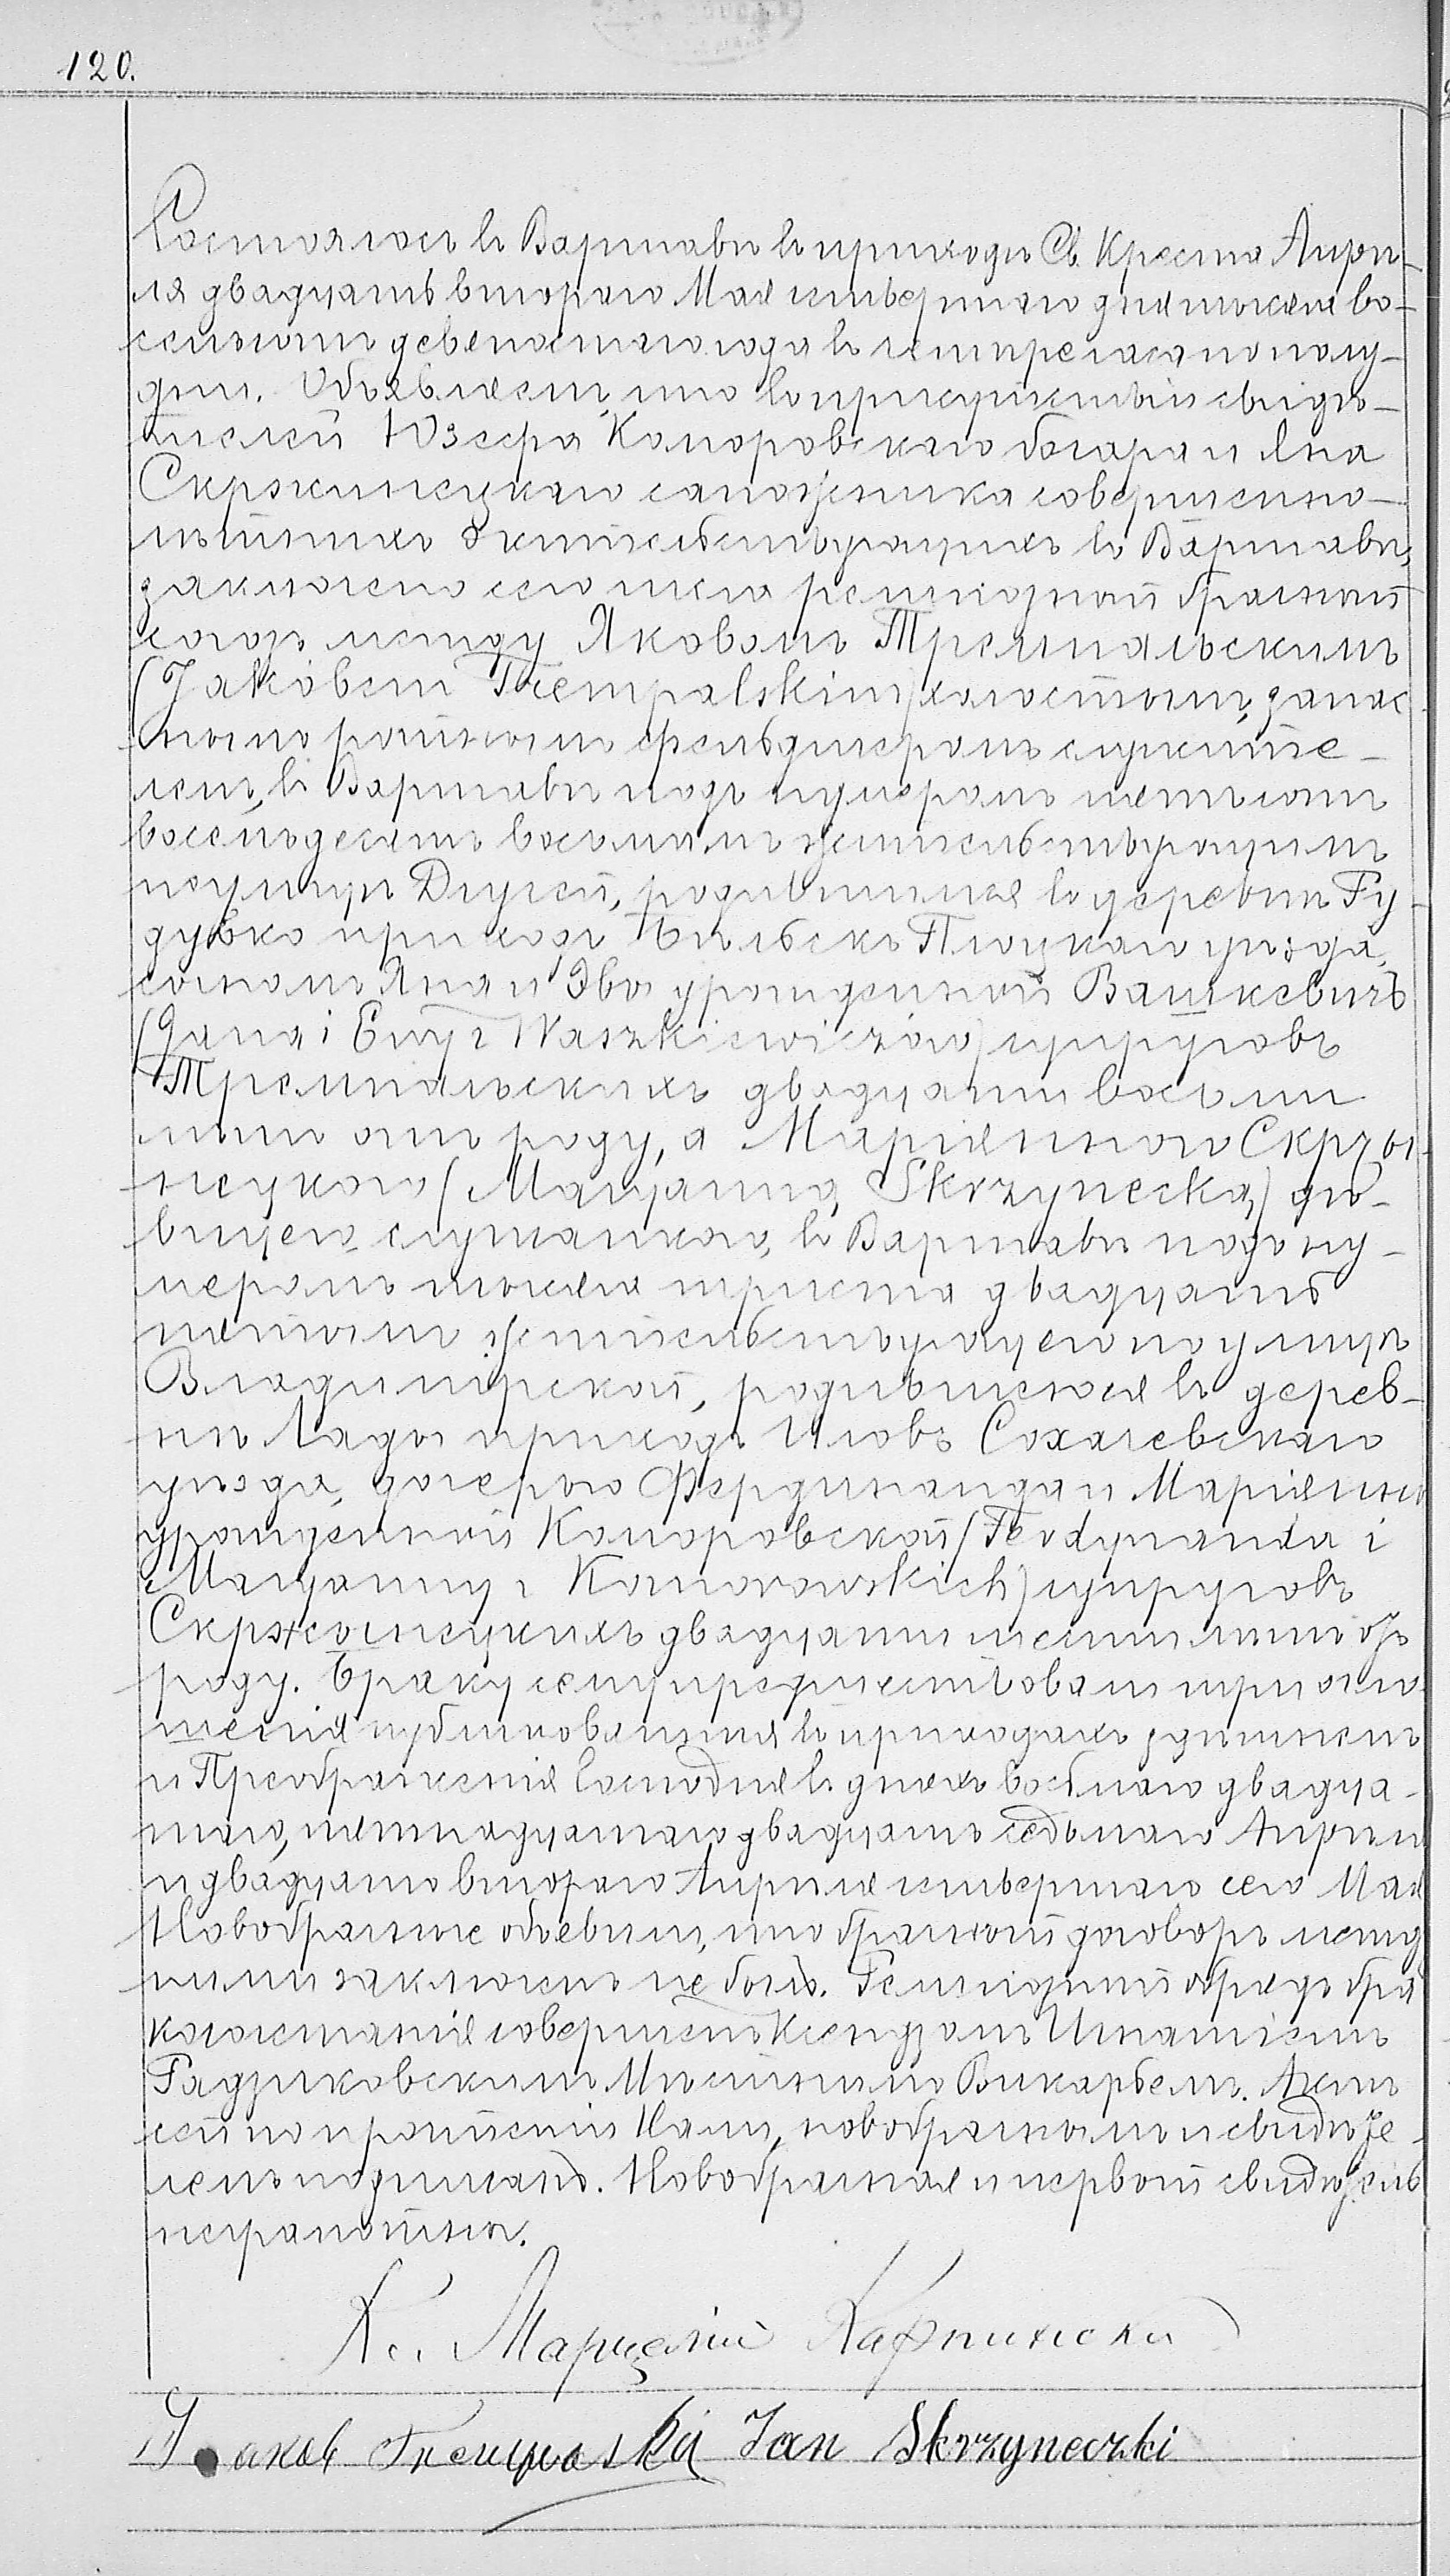 120.
Состоялось въ Варшавѣ въ приходѣ Св. Креста Апрѣ-
ля двадцать втораго Мая четвертаго дня тысяча во-
семьсотъ девяностаго года въ четыре часа по полу-
дни. Объявляемъ, что въ присутствіи свидѣ-
телей Юзефа Коморовскаго и Яна
Скржинецкаго сапожника совершенно-
лѣтнихъ жительствующихъ въ Варшавѣ,
заключено сего числа религіозный брачный
союзъ между Яковомъ Тремпальскимъ
(Jakóbem Trempalskim) холостымъ, запас-
нымъ ротнымъ фельдшеромъ служите-
лемъ, въ Варшавѣ подъ нумеромъ пятьсотъ
восемьдесятъ восьмымъ жительствующимъ
по улицѣ Длугей, родившимся въ деревнѣ Гу-
дувко приходѣ Бѣльскъ Плоцкаго уѣзда,
сыномъ Яна и Эвы урожденной Вашкевичъ
(Jana i Ewy z Waszkiewiczów) супруговъ
Тремпальскихъ двадцати восьми
лѣтъ отъ роду, а Маріянною Скржы-
нецкою (Maryanną Skrzynecką) дѣ-
вицею, служанкою, въ Варшавѣ подъ ну-
меромъ тысяча триста двадцать
пятымъ жительствующею по улицѣ
Владимірской, родившеюся въ дерев-
нѣ Лады приходѣ Иловъ Сохачевскаго
уѣзда, дочерью Фердинанда и Маріянны
урожденной Коморовской (Ferdynanda i
Maryanny z Komorowskich) супруговъ
Скржынецкихъ двадцати шести лѣтъ отъ
роду. Браку сему предшествовали три огла-
шенія публикованныя въ приходахъ здѣшнемъ
и Преображенія Господня въ дняхъ восьмаго двадца-
таго, пятнадцатаго двадцать седьмаго Апрѣля
и двадцать втораго Апрѣля четвертаго сего Мая
Новобрачные объявили, что брачный договоръ между
ними заключенъ не былъ. Религіозный обрядъ бра
косочетанія совершенъ Ксендзомъ Игнатіемъ
Радзиковскимъ Мѣстнымъ Викаріемъ. Актъ
сей по прочтеніи Нами, новобрачнымъ и свидѣте-
лемъ подписанъ. Новобрачная и первый свидѣтель
неграмотны.
Кс. Марцелій Карпински
Яковъ Jan Skrzyneczki